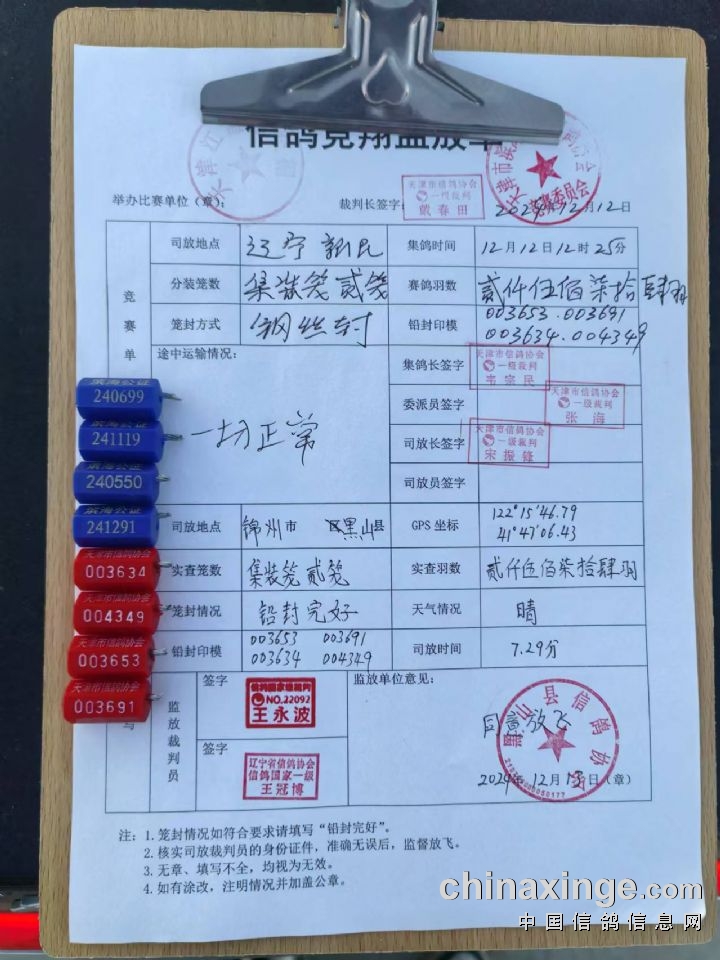 信鸽竞翔监放单
举办比赛单位（章）：
裁判长签字：
天津市信鸽协会
一级裁判
戴春田
2024年12月12日
司放地点 辽宁 新民 集鸽时间 12月12日12时25分
分装笼数 集装笼贰笼 赛鸽羽数 贰仟伍佰柒拾肆羽
笼封方式 钢丝封 铅封印模 003653.003691
003634.004349
竞赛单
途中运输情况：
一切正常
集鸽长签字
天津市信鸽协会
一级裁判
韦宗民
委派员签字
天津市信鸽协会
一级裁判
张海
司放长签字
天津市信鸽协会
一级裁判
宋振锋
司放员签字
滨海公证
240699
滨海公证
241119
滨海公证
240550
滨海公证
241291
天津市信鸽协会
003634
天津市信鸽协会
004349
天津市信鸽协会
003653
天津市信鸽协会
003691
司放地点 锦州市 区黑山县 GPS 坐标 122°15'46.79
41°47'06.43
实查笼数 集装笼贰笼 实查羽数 贰仟伍佰柒拾肆羽
笼封情况 铅封完好 天气情况 晴
铅封印模 003653 003691
003634 004349
司放时间 7.29分
写
监放裁判员
签字
信鸽国家级裁判
NO.22092
王永波
签字
辽宁省信鸽协会
信鸽国家一级
王冠博
监放单位意见：
同意放飞
黑山县信鸽协会
2024年12月13日（章）
注：1. 笼封情况如符合要求请填写“铅封完好”。
2. 核实司放裁判员的身份证件，准确无误后，监督放飞。
3. 无章、填写不全，均视为无效。
4. 如有涂改，注明情况并加盖公章。
chinaxinge.com
中国信鸽信息网